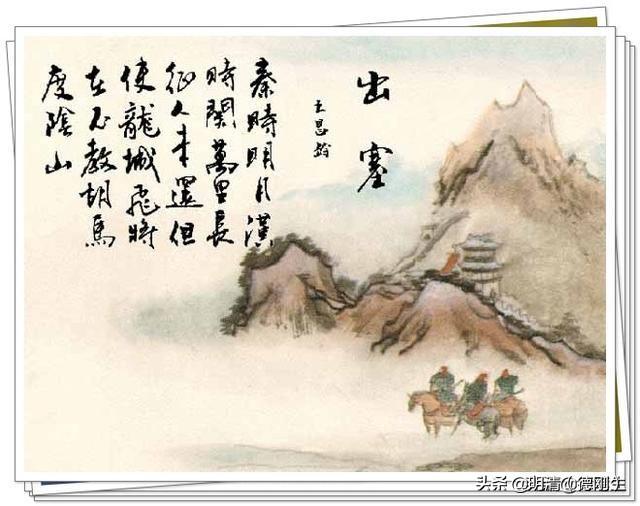 出塞
王昌齡
秦時明月漢
時關萬里長
征人未還但
使龍城飛將
在不教胡馬
度陰山
头条 @明清@德刚生